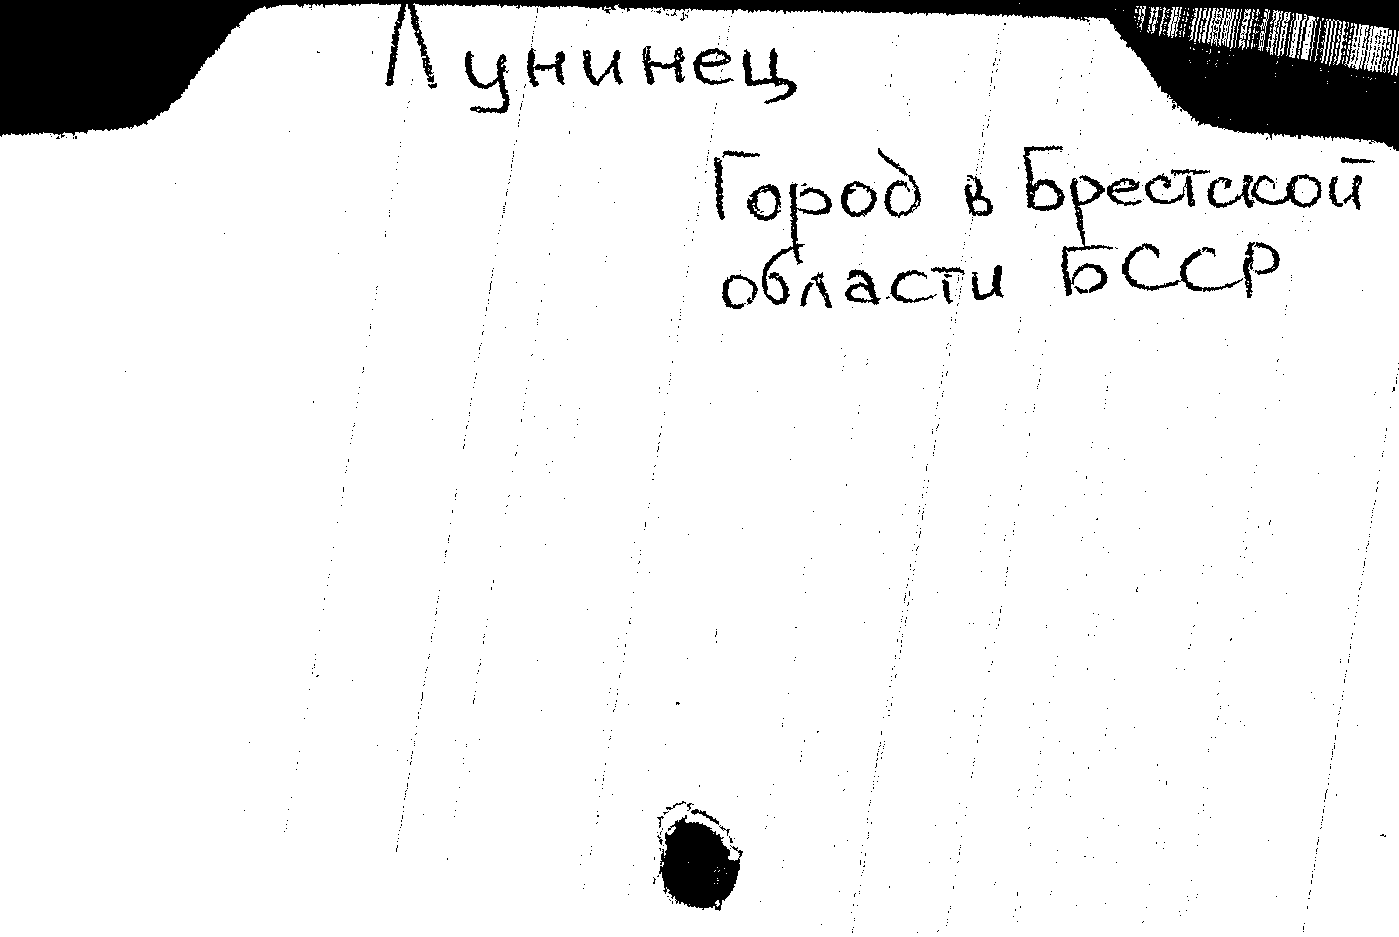 Лунинец
Город в Брестской
области БССР